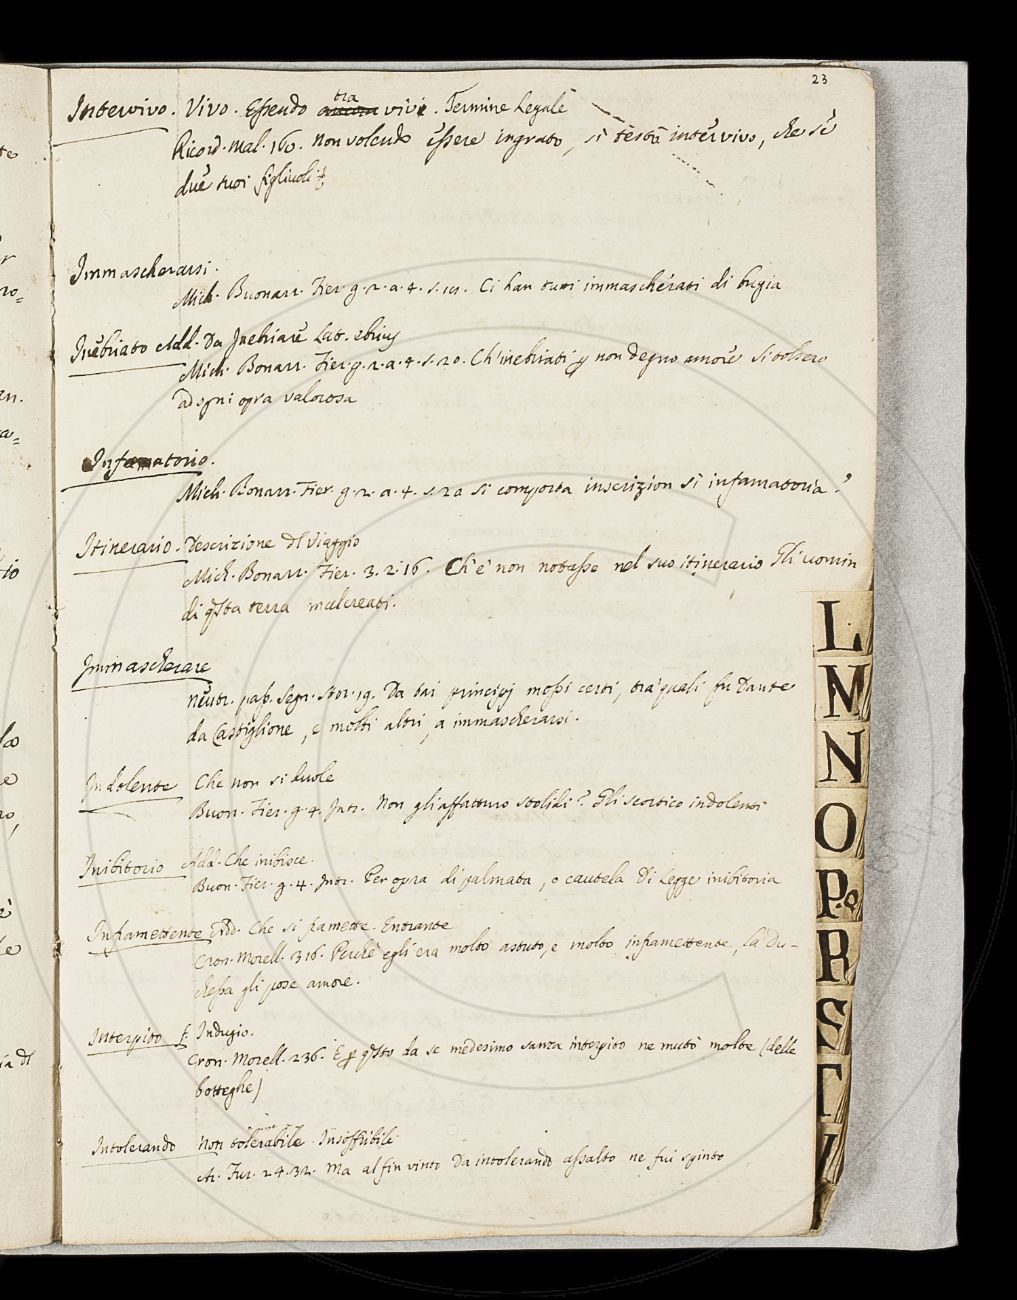 23
Intervivo. Vivo. Essendo ancora tra vivi. Termine Legale
Ricord. Mal. 160. Non volendo essere ingrato, si testò intervivo, che se
due suoi figliuoli
Immascherarsi.
Mich. Buonarr. Fier. g. 2. a. 4. s. Ci han tutti immascherati di bugia
Inebriato Add. Da Inebriare Lat. ebrius
Mich. Bonarr. Fier. g. 2. a. 4. s. 20. Ch'inebriati non degno amore si tolsero
ad ogni opra valorosa
Infamatorio.
Mich. Bonarr. Fier. g. 2. a. 4. s. 20 Si comporta inscrizion sì infamatoria?
Itinerario. Descrizione dl Viaggio
Mich. Bonarr. Fier. 3. 2. 16. Ch'e' non notasse nel suo itinerario Gli uomin
di qsta terra malcreati.
Immascherare
neutr. pass. Segn. Stor. 19. Da tai principj mossi certi, tra' quali fu Dante
da Castiglione, e molti altri, a immascherarsi.
Indolente Che non si duole
Buon. Fier. g. 4. Intr. Non gli affatturo stolidi? Gli scortico indolenti
Inibitorio Add. Che inibisce.
Buon. Fier. g. 4. Intr. Per opra di palmata, o cautela Di Legge inibitoria
Inframettente Add. Che si framette. Entrante
Cron. Morell. 316. Perchè egli era molto astuto, e molto inframettente, la Du-
chessa gli pose amore.
Interpito f. Indugio.
Cron. Morell. 236. E p qsto da se medesimo sanza interpito ne mutò molte (delle
botteghe)
Intolerando Non tolerabile. Insoffribile
Ar. Fur. 24. 32. Ma al fin vinto Da intolerando assalto ne fui spinto
L
M
N
O
P.Q
R
S
T
V